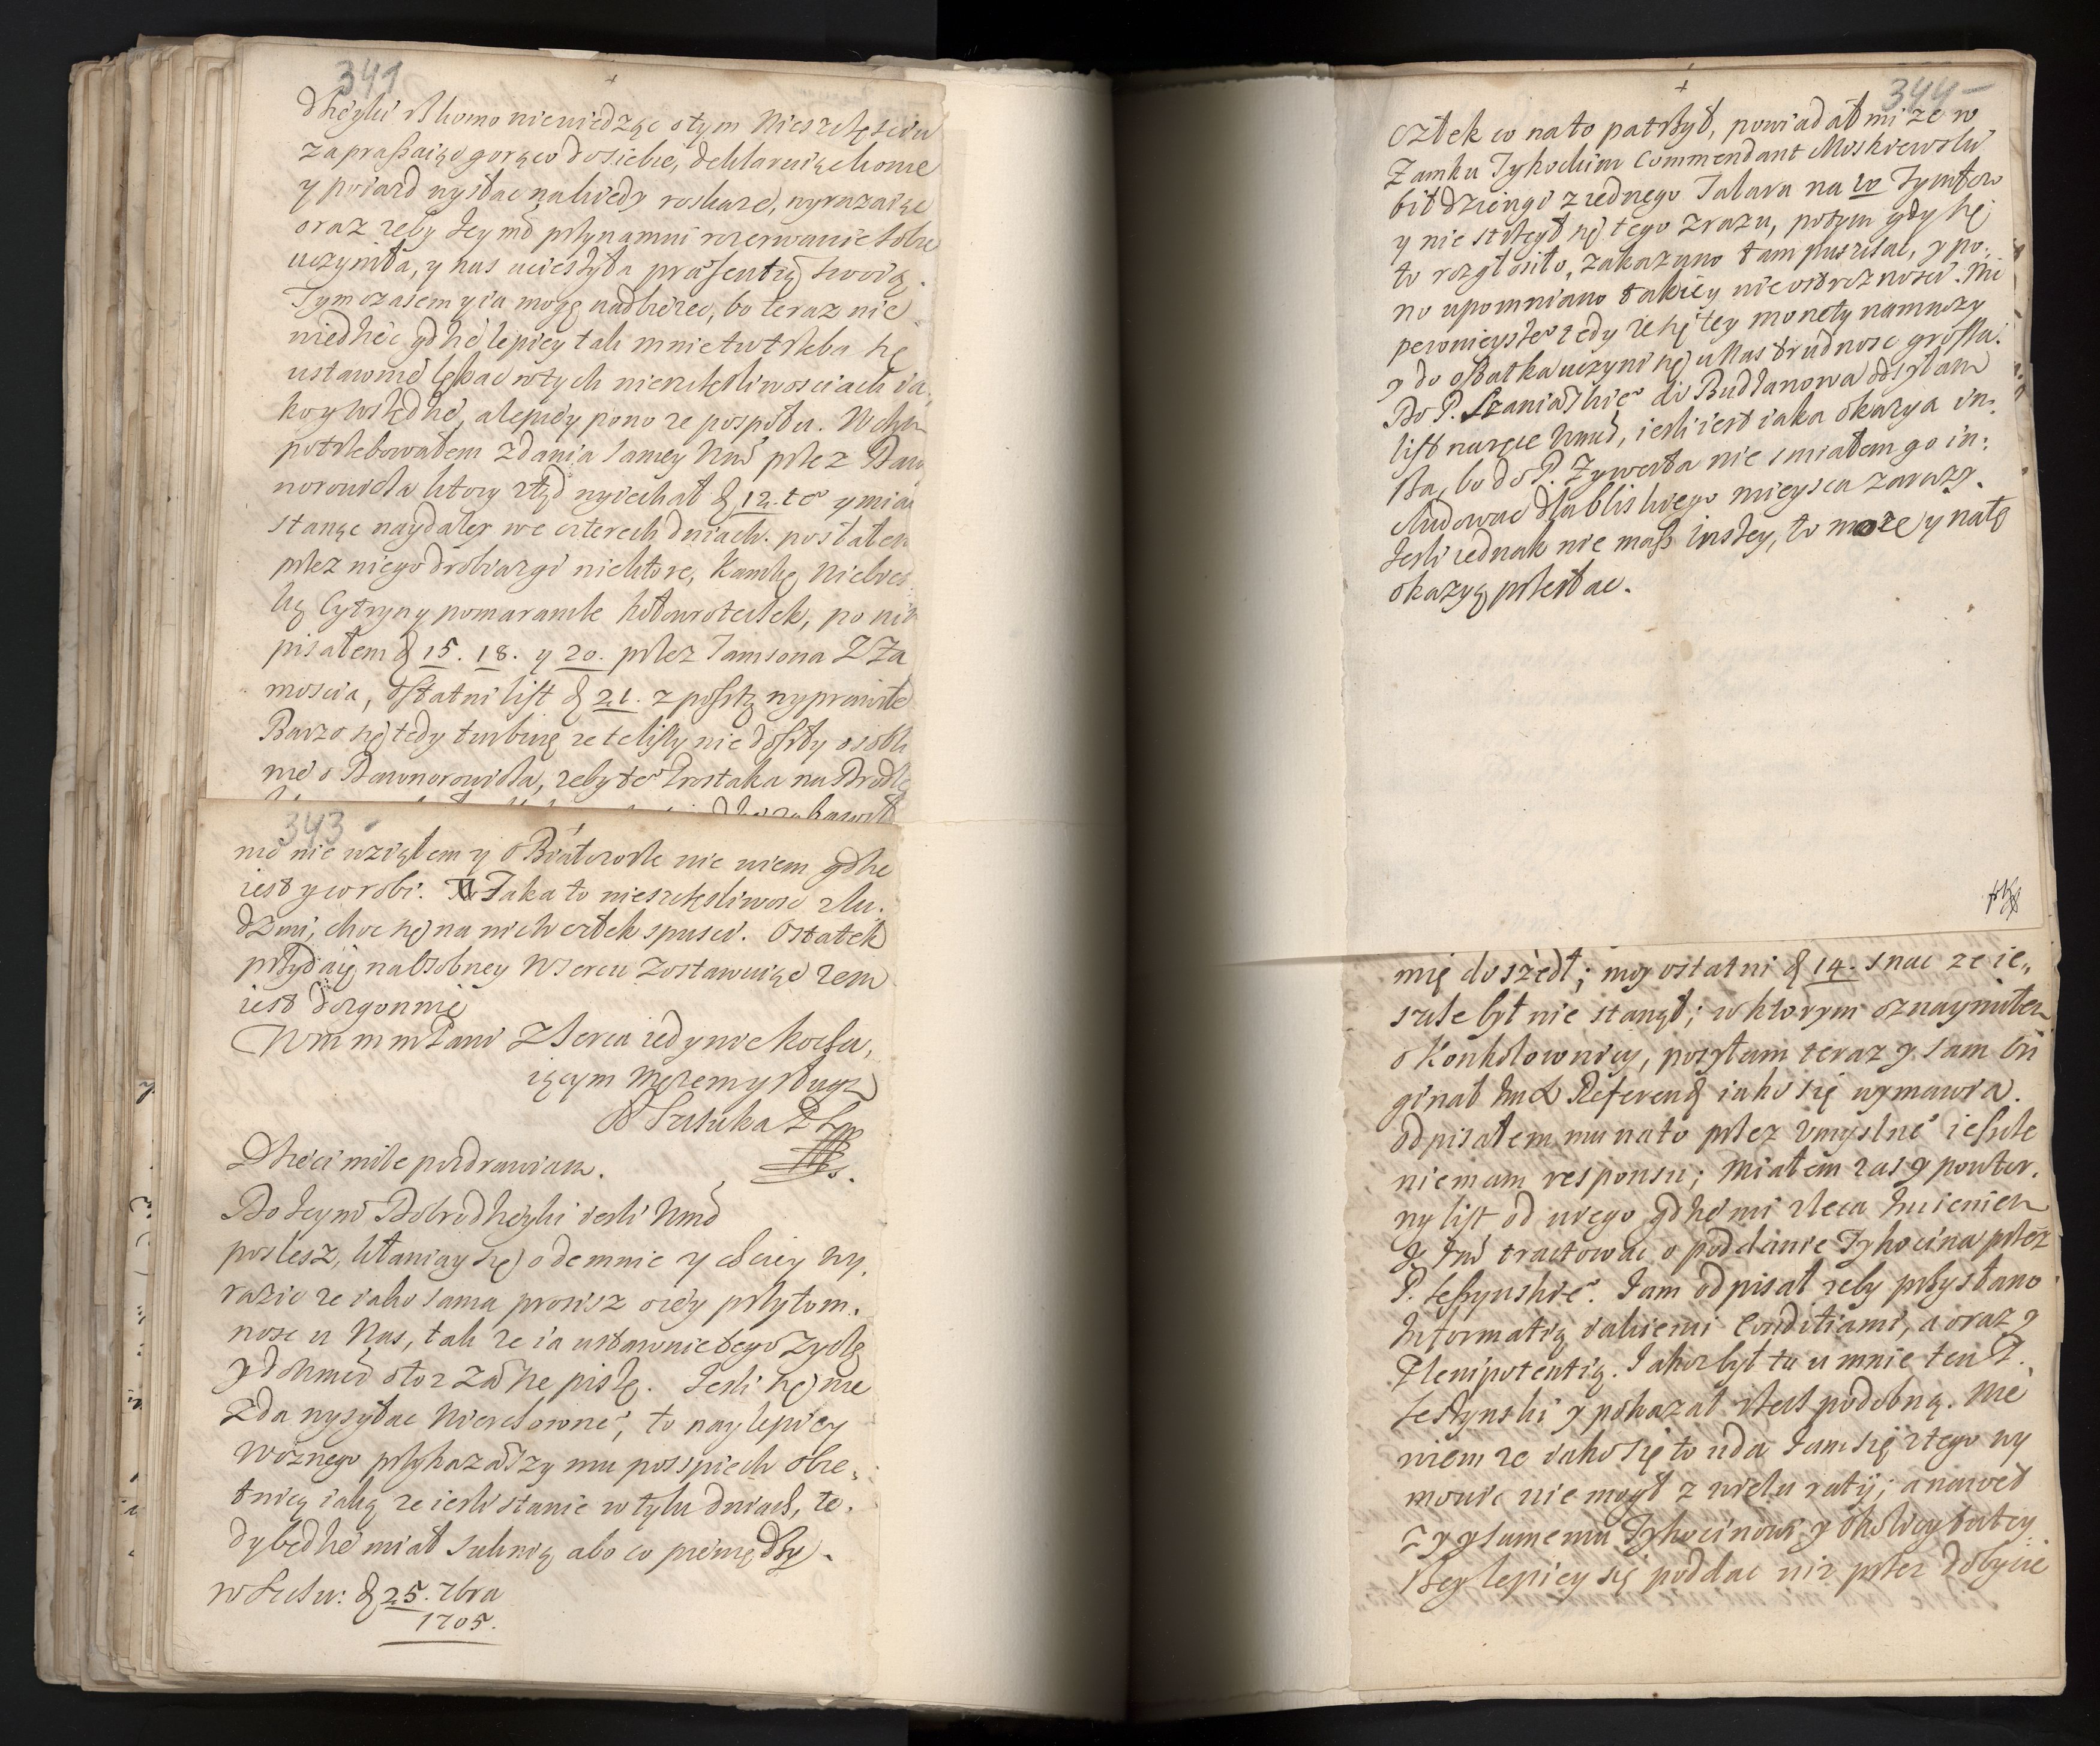 341
dheyki rkomo niewiedząc o tym Nieszczęściu
zapraßaiąc gorąco do siebie, deklaruiąc konie
y poiazd wysłac na kiedy roskaże, wyrazaiąc
oraz zeby Jeymć przynamni rozerwanie sobie
uczyniła, y nas ucieszyła praesentią swoią.
Tym czasem y ia mogę nadbieżec, bo teraz nie
wiedzieć gdzie lepiey tak mnie tu trzeba się
ustawnie lękac w tych nieszczęsliwosciach ia,
ko y wszędzie, a lepiey pono ze pospołu. W czym
potrzebowałem zdania samey Wmć przez Baw
norowicza ktory ztąd wyiechał d 12. te° y miał
stanąc naydaley we czterech dniach. posłałem
przez niego drobiazgi niektore, Kawkę Niebies
ką Cytryny pomarancze kołowroteczek, po nim
pisałem d 15. 18. y 20. przez Samsona Z Za
moscia, ostatni list d 21. z posztą wyprawiłe
Barzo się tedy turbuię ze te listy nie doszły osobli
wie o Bawnorowicza, zeby te° Prostaka na Brodk
343
nic nie wziąłem y o Białozorze nie wiem gdzie
iest y co robi. Taka to nieszczęsliwosc z lu.
dzmi, choc się na nich człek spusci. Ostatek
przydaię na osobney W sercu zostawuiąc zem
iest dozgonnie
Wm m mPani Z Serca iedynie kocha,
iącym Męzem y sługą
S Szczuka P L
Dzieci mile pozdrawiam.
Do Jeymć Dobrodzieyki iesli Wmć
poslesz, kłaniay się odemnie y chciey wy,
razic ze iako sama prosisz o iey przytom.
nosc u Nas, tak ze ia ustawnie tego zyczę
y do Wmć otoz za się piszę. Jesli się nie
zda wysyłac Nierekowne°, to naylepiey
Woznego przykazawszy mu pospiech obie,
tnicą iaką ze iesli stanie w tylu dniach, te.
dy będzie miał Suknią abo co pieniędzy.
w Szczu: d 25. 7bra
1705.
344
człek co na to patrzył, powiadał mi ze w
Zamku Tykockim Commendant Moskiewski
bił dziengi z iednego Talara na 20 Tymfow
y nie strzegł się tego zrazu, potym gdy się
to rozgłosiło, zakazano tam puszczac, y po:
no upomniano takiey nieostroznosci. Ni
pewnieysze° tedy ze się tey monety namnozy
y do ostatka uczyni się u Nas trudnosc grosza.
Do P. Szaniawskie° do Budzanowa odsyłam
list na ręce Wmć, iesli iest iaka okazya in.
sza, bo do P. Zywerta nie smiałem go in:
cludowac dla bliskiego mieysca zarazy.
Jesli iednak nie masz inszey, to może y na tę
okazyę przesłac.
mię doszedł; moy ostatni d 14. snac ze ie„
szcze był nie stanął; w ktorym oznaymiłem
o Konkolownicy, posyłam teraz y sam Ori
ginał Jmć Referend iako się wymawia.
odpisałem mu na to przez Vmyslne° ieszcze
niemam responsu; Miałem zas y powtor.
ny list od niego gdzie mi zleca Imieniem
J. Kmć tractowac o poddanie Tykocina przez
P. Leszynskie°. Jam odpisał zeby przysłano
Informatią iakiemi Conditiami, a oraz y
Plenipotentią. Jakoz był tu u mnie ten P.
Leszynski y pokazał rzecz podobną. Nie
wiem ze iako się to uda Jam się z tego wy
mowic nie mogł z wielu ratij; a nawet
zyczę samemu Tykocinowi y okolicy tutey
szey lepiey się poddac niz przez dobycie